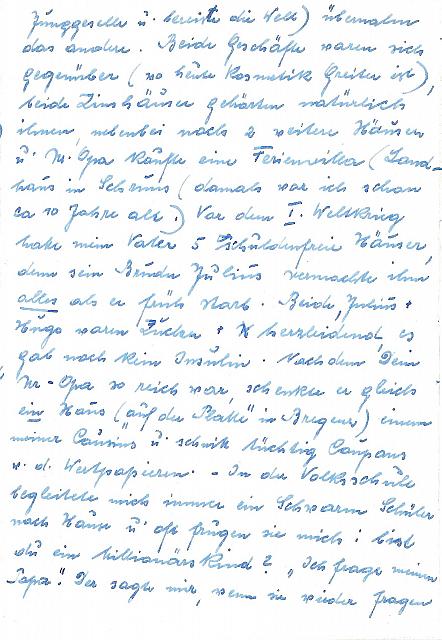 Junggeselle u. bereiste die Welt) übernahm
das andere. Beide Geschäfte waren sich
gegenüber (wo heute Kosmetik Greiter ist),
beide Zinshäuser gehörten natürlich
ihnen, nebenbei noch 2 weitere Häuser
u. Ur-Opa kaufte eine Ferienvilla (Land-
haus in Schruns (damals war ich schon
ca 10 Jahre alt.) Vor dem I. Weltkrieg
hatte mein Vater 5 schuldenfreie Häuser,
denn sein Bruder Julius vermachte ihm
alles als er früh starb. Beide, Julius +
Hugo waren Zucker + herzleidend, es
gab noch kein Insulin. Nachdem Dein
Ur-Opa so reich war, schenkte er gleich
ein Haus (auf der Platte" in Bregenz) einem
meiner Cousins u. schnitt tüchtig Coupons
v. d. Wertpapieren. - In der Volksschule
begleitete mich immer ein Schwarm Schüler
nach Hause u. oft frugen sie mich: bist
du ein Millionärskind? "Ich frage meinen
Papa". Der sagte mir, wenn sie wieder fragen